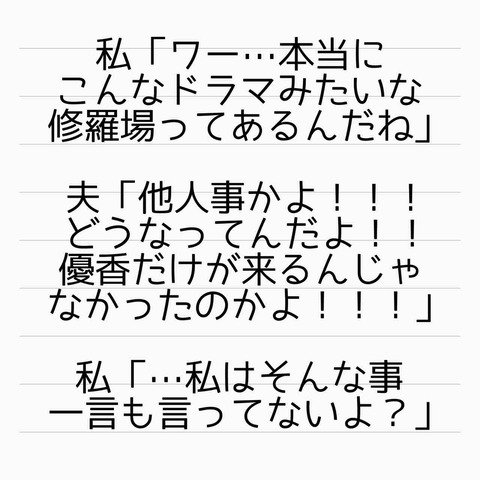 私「ワー…本当に
こんなドラマみたいな
修羅場ってあるんだね」
夫「他人事かよ！！！
どうなってんだよ！！
優香だけが来るんじゃ
なかったのかよ！！！」
私「…私はそんな事
一言も言ってないよ？」